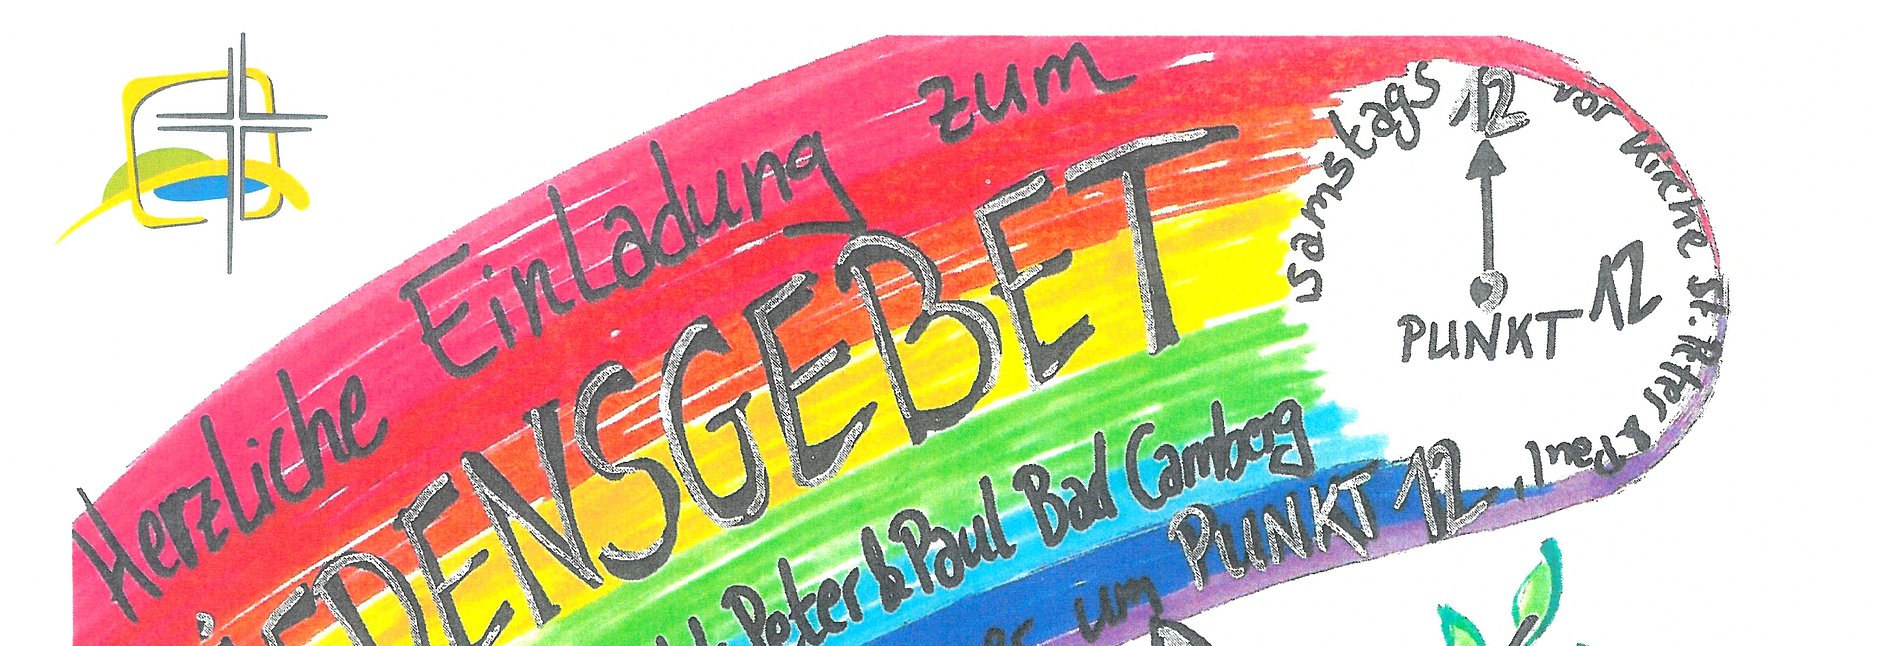 Herzliche Einladung zum
IEDENSGEBET
Peter & Paul Bad Camberg
um PUNKT 12
samstags
12
vor Kirche St. Peter & Paul
PUNKT 12